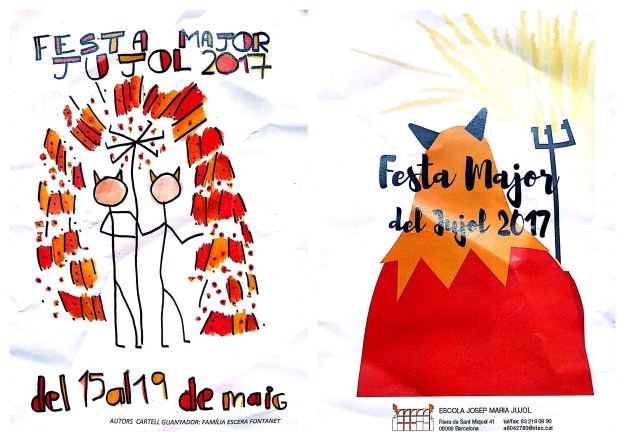 FESTA MAJOR
JUJOL 2017
del 15 al 19 de maig
AUTORS CARTELL GUANYADOR: FAMÍLIA ESCERA FONTANET
Festa Major
del Jujol 2017
ESCOLA JOSEP MARIA JUJOL
Riera de Sant Miquel 41 tel/fax 93 218 08 90
08006 Barcelona a8042780@xtec.cat